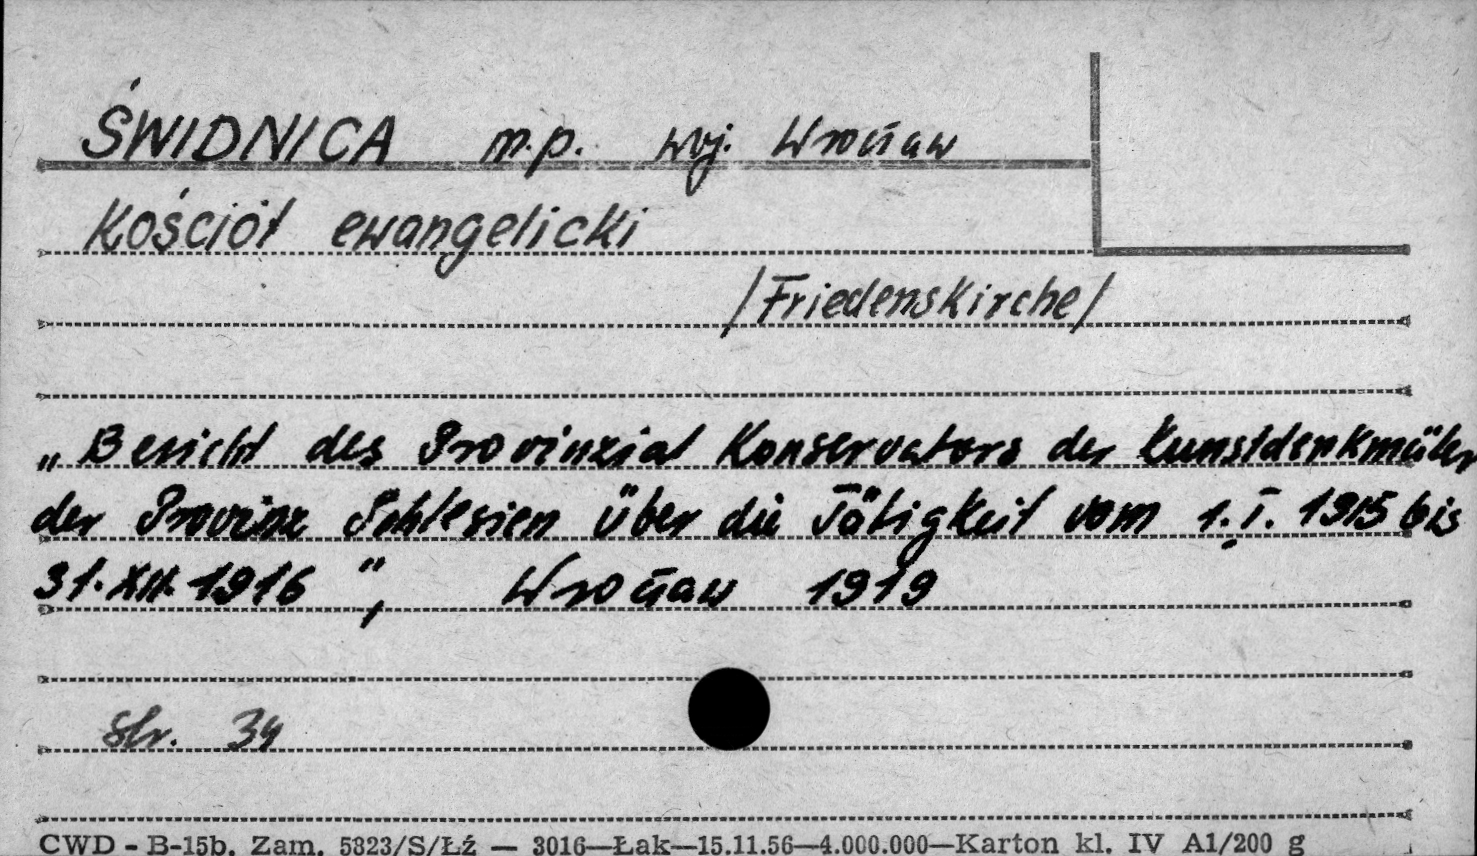 ŚWIDNICA m.p. woj. Wrocław
Kościół ewangelicki
/Friedenskirche/
„Bericht des Provinzial Konservators der Kunstdenkmäler
der Provinz Schlesien über die Tätigkeit vom 1.I.1915 bis
31.XII.1916", Wrocław 1919
str. 34
CWD - B-15b. Zam. 5823/S/Łź — 3016—Łak—15.11.56—4.000.000—Karton kl. IV A1/200 g